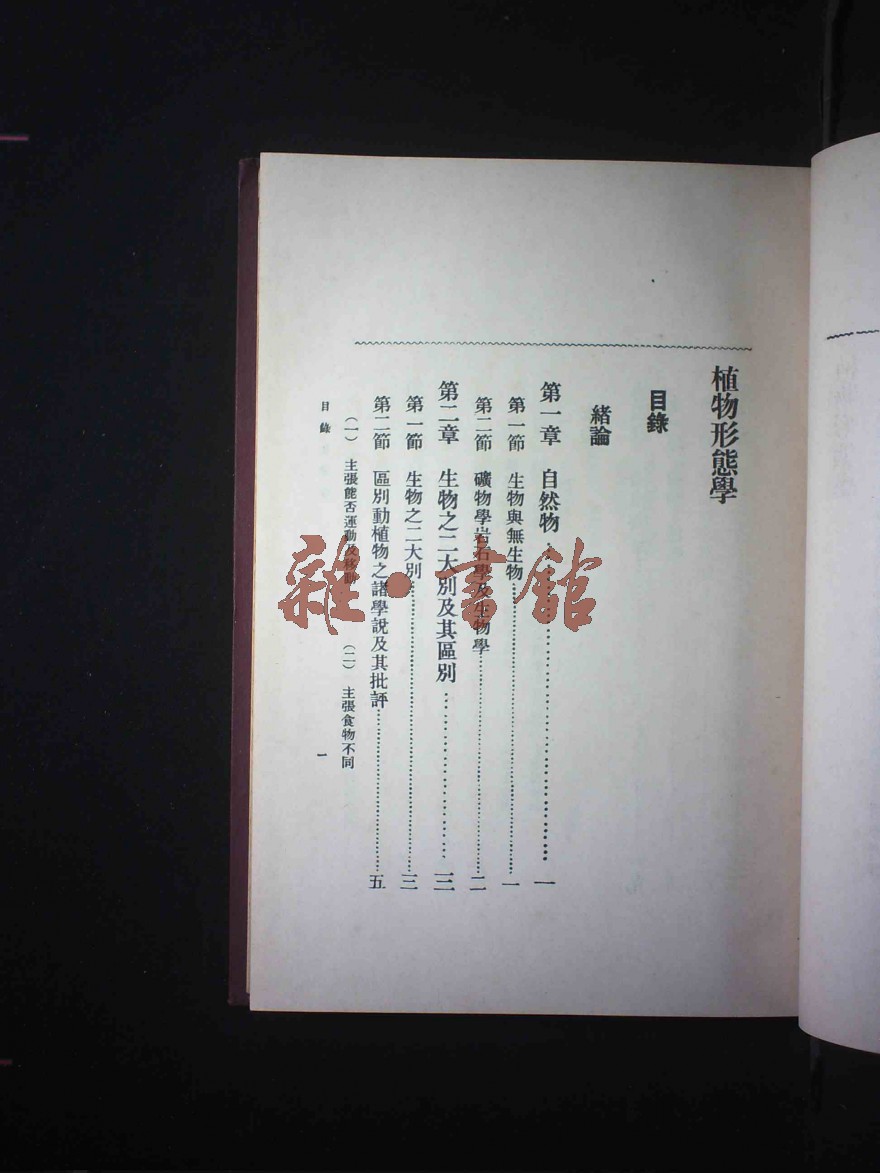 植物形態學
目錄
緒論
第一章　自然物……一
第一節　生物與無生物……一
第二節　礦物學岩石學及生物學……二
第二章　生物之二大別及其區別……三
第一節　生物之二大別……三
第二節　區別動植物之諸學說及其批評……五
（一）主張能否運動及移動　（二）主張食物不同
目錄　一
雜·書館